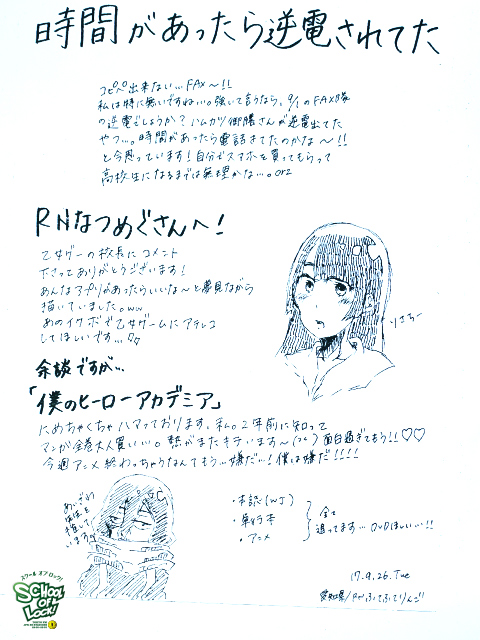 時間があったら逆電されてた
コピペ出来ない…FAX〜!!
私は特に無いですねぃ。強いて言うなら、9/1のFAX8隊
の逆電でしょうか?ハムカツ御膳さんが逆電出てた
やつ…。時間があったら電話きてたのかな〜!!
と今思っています!自分でスマホを買ってもらって
高校生になるまでは無理かな…。orz
RNなつめぐさんへ!
乙女ゲーの校長にコメント
下さってありがとうございます!
あんなアプリがあったらいいな〜と夢見ながら
描いていました。ww
あのイケボで乙女ゲームにアテレコ
してほしいです…
りさちー
余談ですが…
「僕のヒーローアカデミア」
にめちゃくちゃハマっております、私。2年前に知って
マンガ全巻大人買い…。熱がまたキテいます〜 面白過ぎてもう!!♡♡
今週アニメ終わっちゃうなんてもう…嫌だ…!僕は嫌だ!!!!
あいざわ
先生を
推して
います
・本誌(WJ)
・単行本
・アニメ
全て
追ってます…DVDほしい…!!
17.9.26.Tue
愛知県/RNふてふてりんご
スクール オブ ロック!
SCHOOL
OF
LOCK!